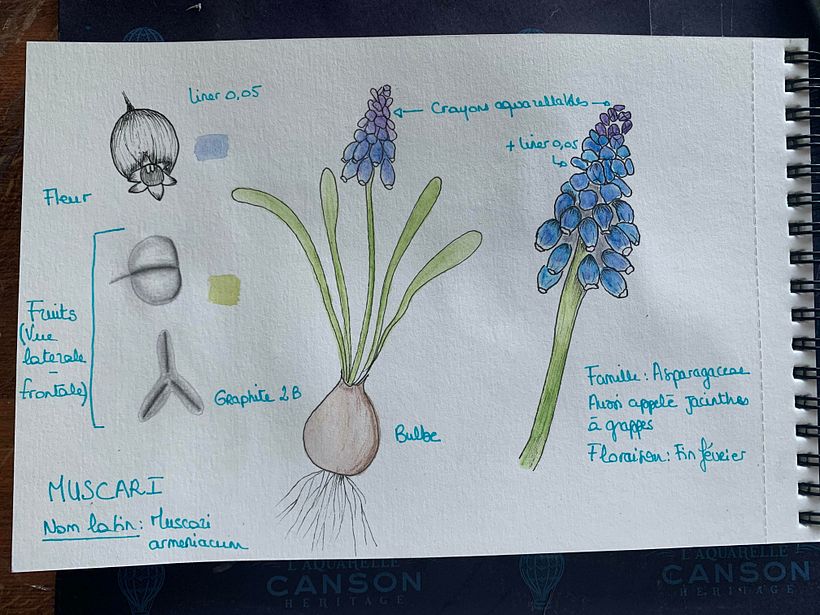 Liner 0,05
Crayons aquarellables
+ Liner 0,05
Fleur
Fruits
(Vue
latérale
-
frontale)
Graphite 2B
Bulbe
Famille : Asparagaceae
Aussi appelé jacinthes
à grappes
Floraison : Fin février
MUSCARI
Nom latin : Muscari
armeniacum
L'AQUARELLE
CANSON
HERITAGE
L'AQUARELLE
CANSON
HERITAGE